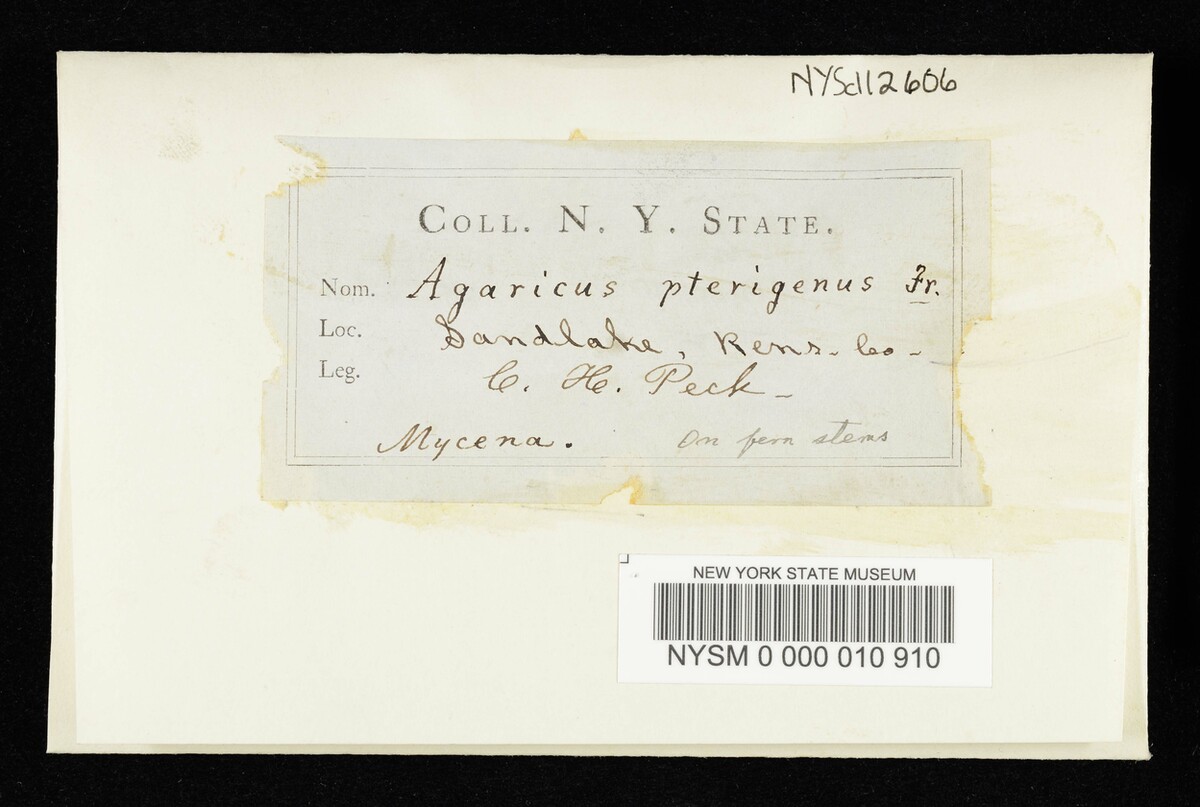 NYSd12606
COLL. N. Y. STATE.
Nom. Agaricus pterigenus Fr.
Loc. Sandlake, Rens. Co.
Leg. C. H. Peck
Mycena. On fern stems
NEW YORK STATE MUSEUM
NYSM 0 000 010 910